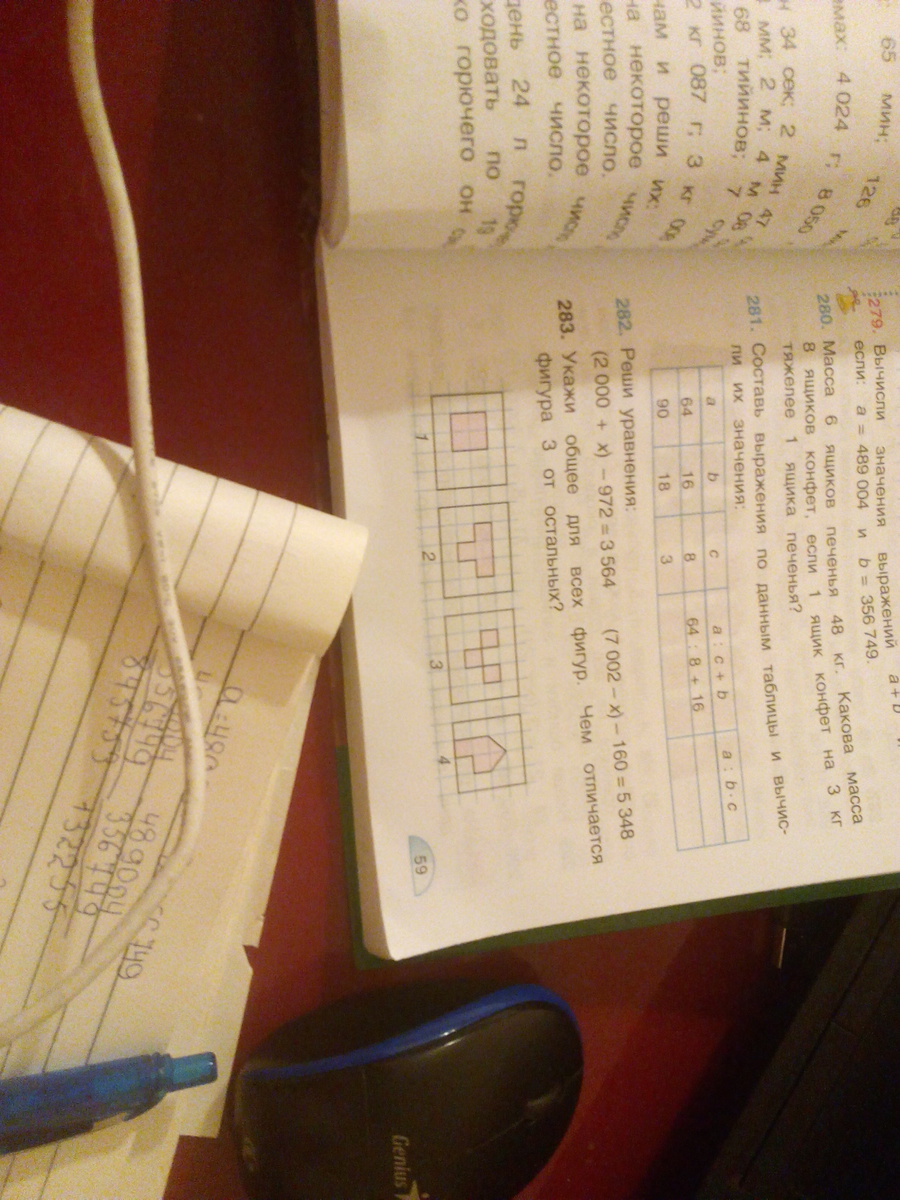 65 мин; 126
емах: 4 024 г; 8 050
34 сек; 2 мин 47
мм; 2 м; 4 м
68 тийинов; 7
йинов;
2 кг 087 г; 3 кг
нам и реши их:
на некоторое число
естное число.
на некоторое число
естное число.
день 24 л горюче
ходовать по
ко горючего он
279. Вычисли значения выражений a + b
если: a = 489 004 и b = 356 749.
280. Масса 6 ящиков печенья 48 кг. Какова масса
8 ящиков конфет, если 1 ящик конфет на 3 кг
тяжелее 1 ящика печенья?
281. Составь выражения по данным таблицы и вычис-
ли их значения:
a b c a : c + b a : b · c
64 16 8 64 : 8 + 16
90 18 3
282. Реши уравнения:
(2 000 + x) – 972 = 3 564 (7 002 – x) – 160 = 5 348
283. Укажи общее для всех фигур. Чем отличается
фигура 3 от остальных?
1 2 3 4
59
356749
845753
489004
356749
Genius